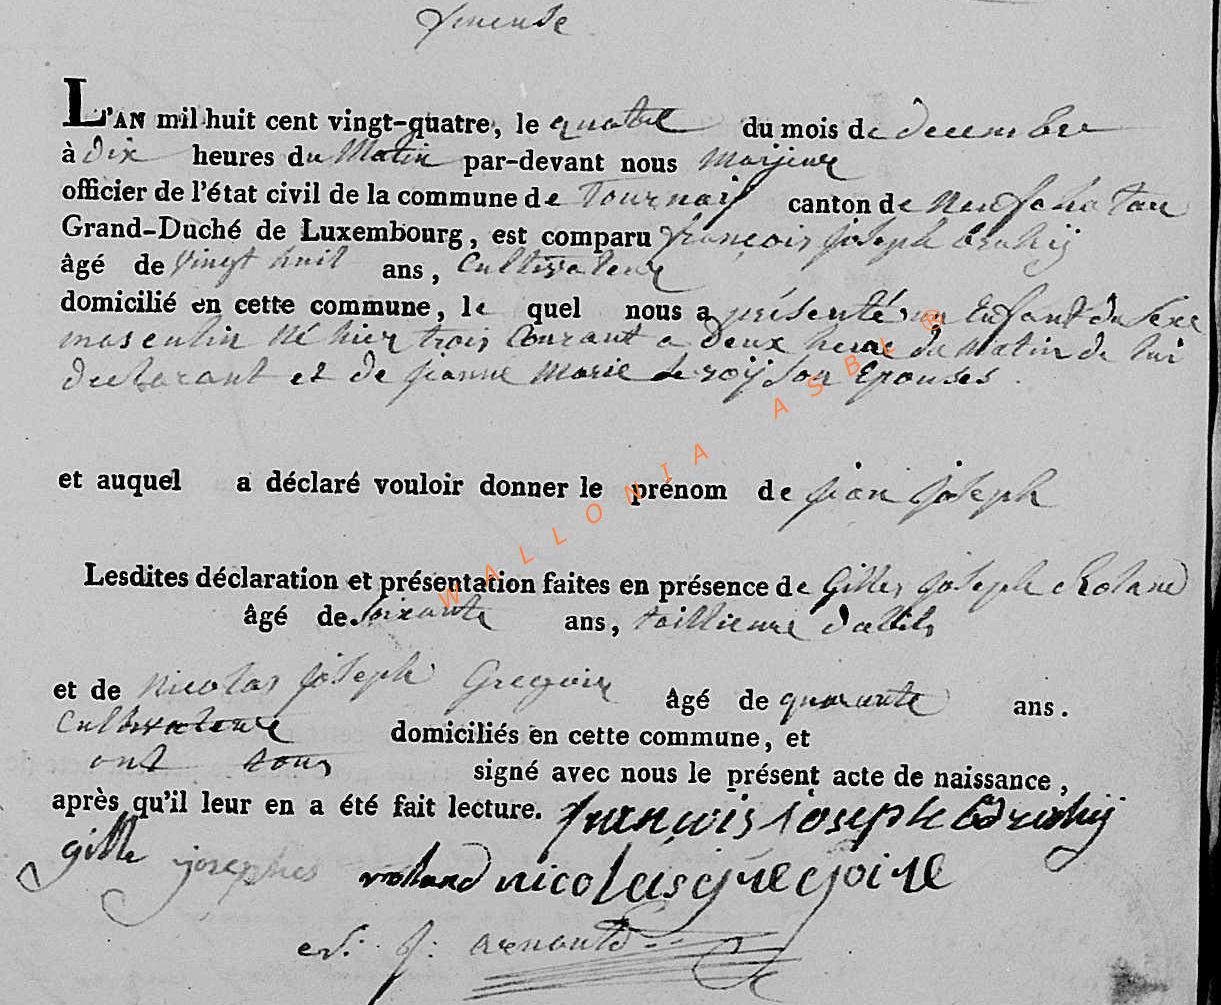 L'AN mil huit cent vingt-quatre, le quatre du mois de decembre
à dix heures du Matin par-devant nous Marjeur
officier de l'état civil de la commune de Tournay canton de Neufchatau
Grand-Duché de Luxembourg, est comparu françois joseph brahÿ
âgé de vingt huit ans, Cultivateur
domicilié en cette commune, le quel nous a présenté un Enfant du Sexe
masculin né hier trois Courant a deux heure du Matin de lui
declarant et de jeanne Marie le roÿ son Epouses.
et auquel a déclaré vouloir donner le prénom de jean joseph
Lesdites déclaration et présentation faites en présence de Gilles joseph Roland
âgé de soixante ans, taillieure d'abits
et de Nicolas joseph Gregoire âgé de quarante ans.
Cultivateure domiciliés en cette commune, et
ont tous signé avec nous le présent acte de naissance,
après qu'il leur en a été fait lecture. françois ioseph brahÿ
gille josephes roland nicolas gregoire
j: arnould
WALLONIA ASBL ®